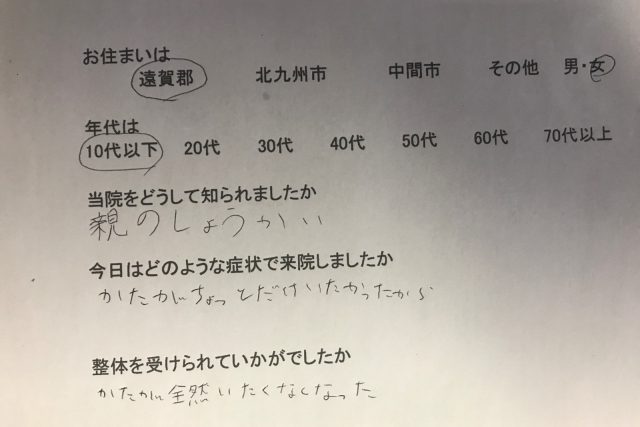 お住まいは
遠賀郡 北九州市 中間市 その他 男・女
年代は
10代以下 20代 30代 40代 50代 60代 70代以上
当院をどうして知られましたか
親のしょうかい
今日はどのような症状で来院しましたか
かたがちょっとだけいたかったから
整体を受けられていかがでしたか
かたが全然いたくなくなった